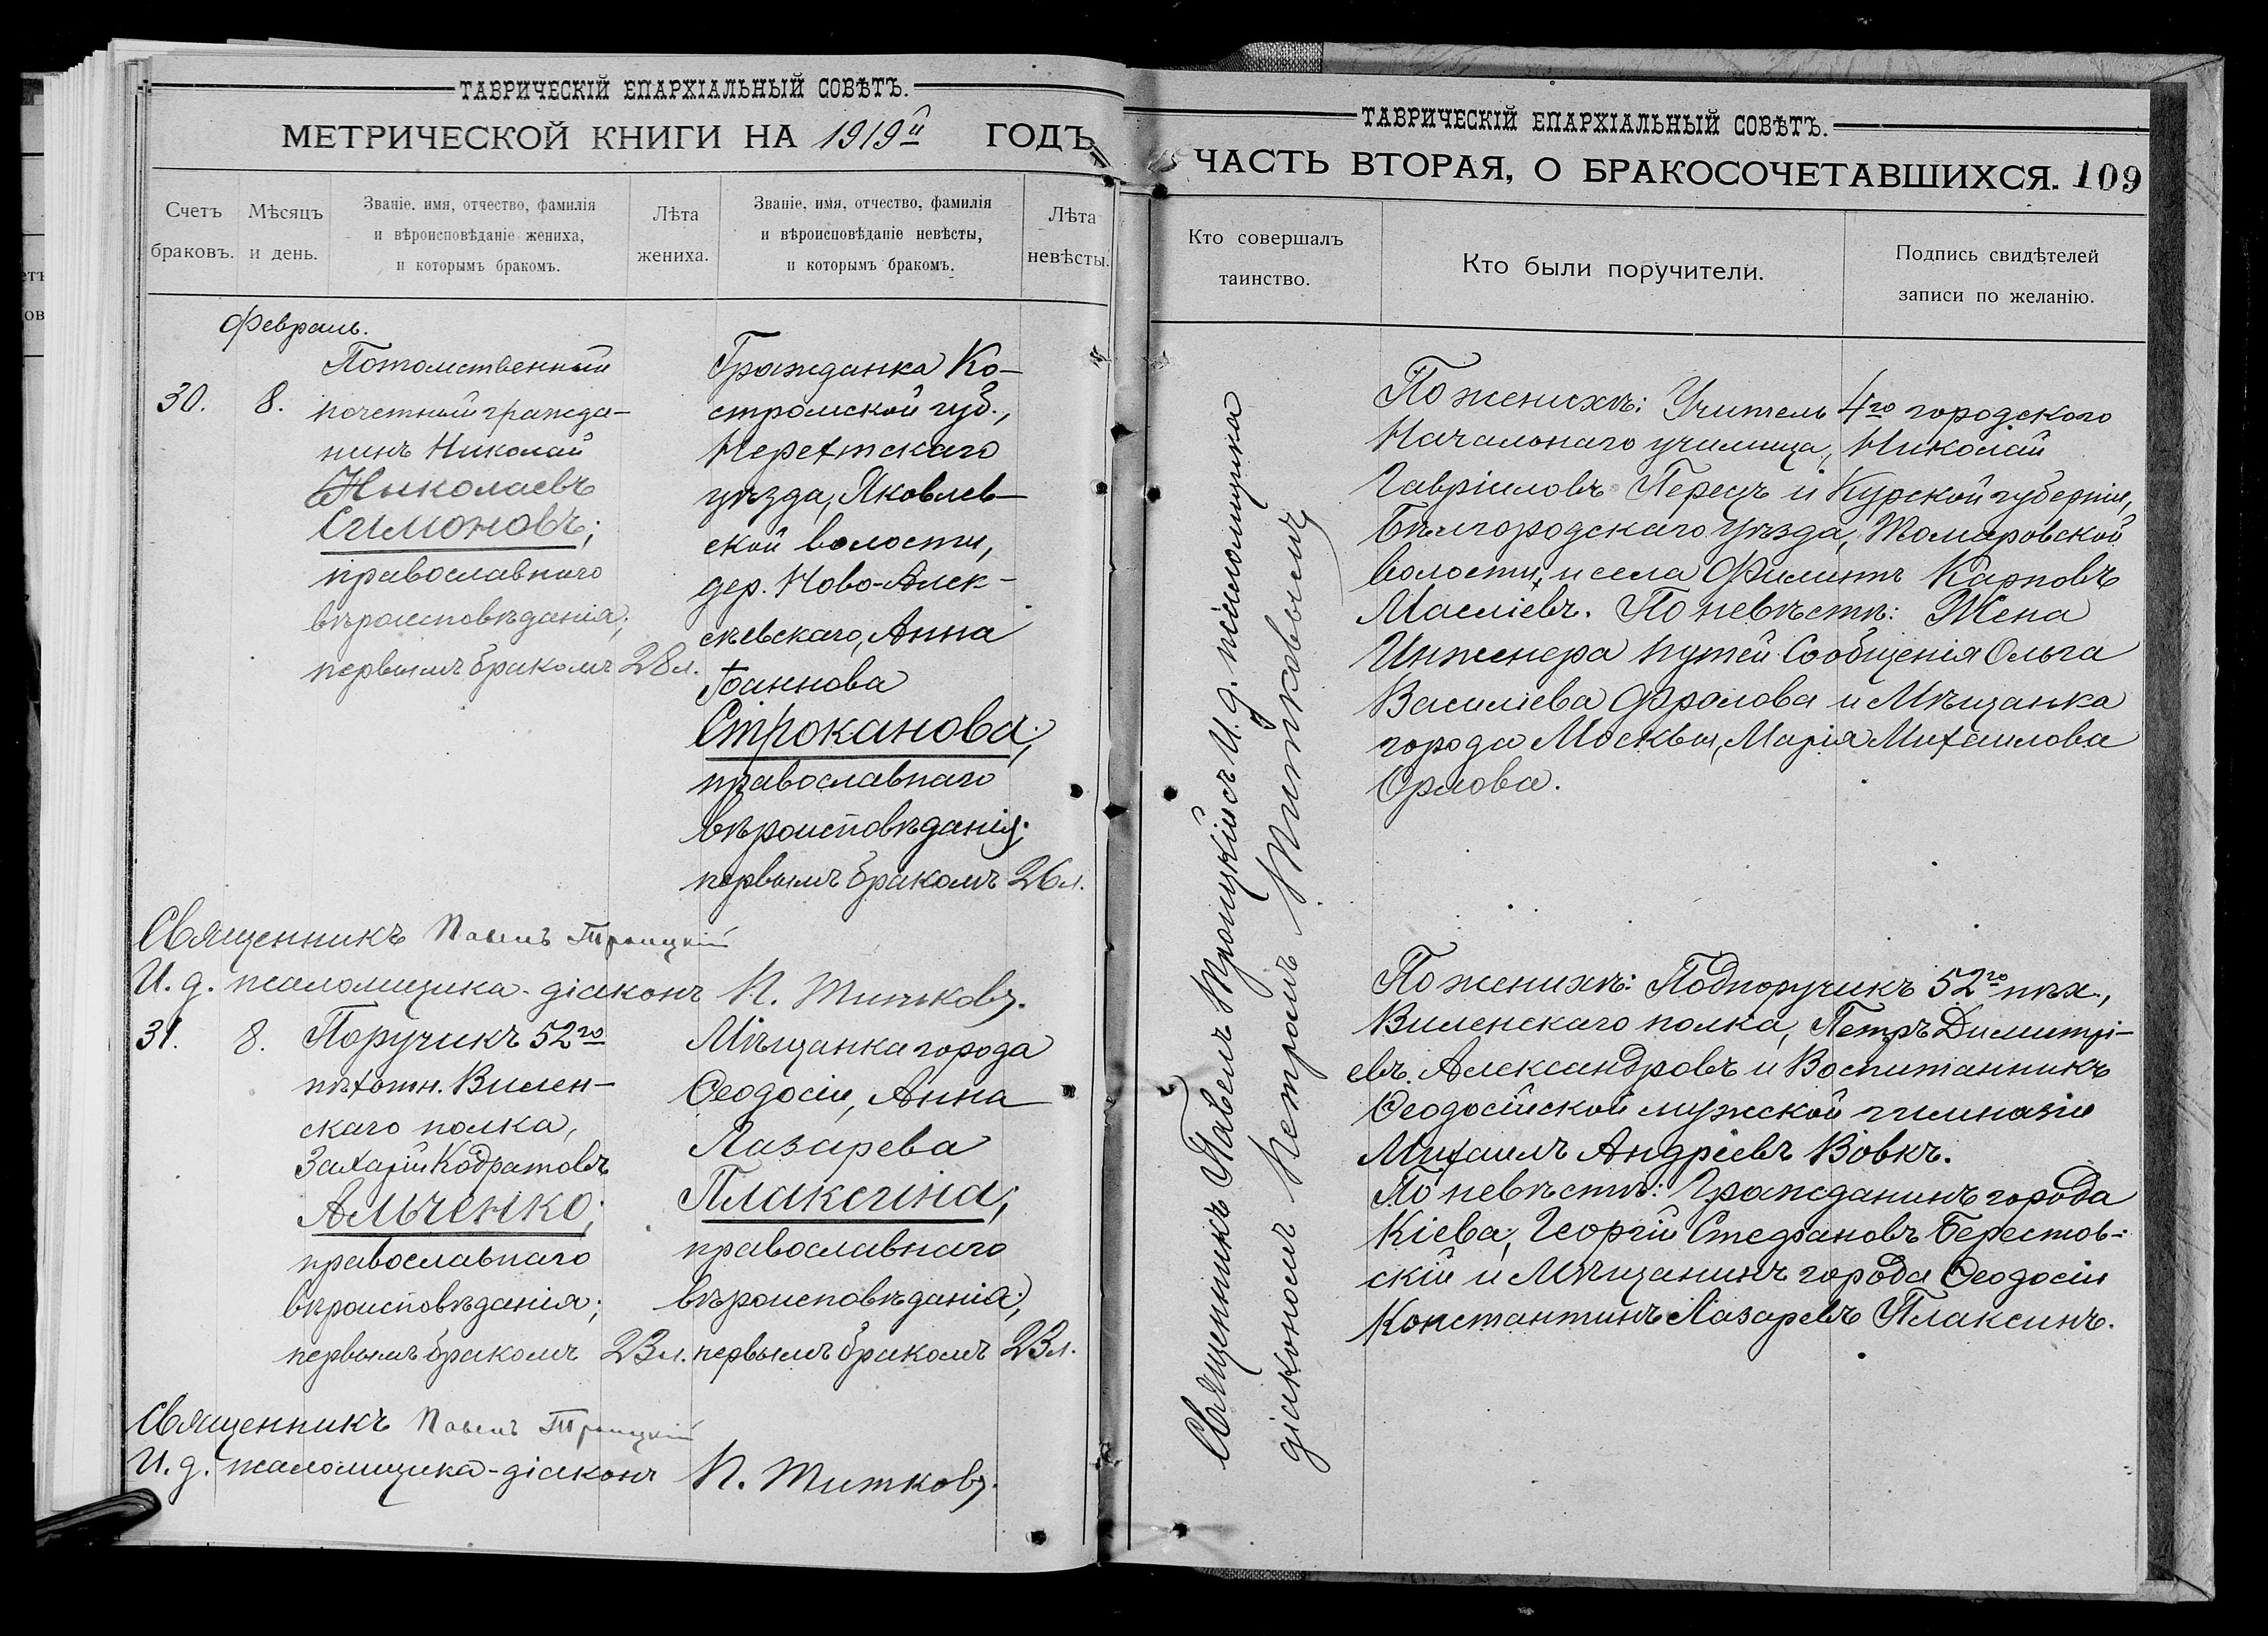 ТАВРИЧЕСКІЙ ЕПАРХІАЛЬНЫЙ СОВѢТЪ.
МЕТРИЧЕСКОЙ КНИГИ НА 1919й ГОДЪ
Счетъ браковъ.
Мѣсяцъ и день.
Званіе, имя, отчество, фамилія
и вѣроисповѣданіе жениха,
и которымъ бракомъ.
Лѣта жениха.
Званіе, имя, отчество, фамилія
и вѣроисповѣданіе невѣсты,
и которымъ бракомъ.
Лѣта невѣсты.
Февраль.
30.
8.
Потомственный
почетный гражда-
нинъ Николай
Николаевъ
Симоновъ;
православнаго
вѣроисповѣданія;
первымъ бракомъ
28 л.
Гражданка Ко-
стромской губ.,
Нерехтскаго
уѣзда, Яковлев-
ской волости,
дер. Ново-Алек-
сѣевскаго, Анна
Іоаннова
Строканова;
православнаго
вѣроисповѣданія;
первымъ бракомъ
26 л.
Священникъ Павелъ Троицкій
И. д. псаломщика-діаконъ П. Титковъ.
31.
8.
Поручикъ 52го
пѣхотн. Вилен-
скаго полка,
Захарій Кодратовъ
Альченко;
православнаго
вѣроисповѣданія;
первымъ бракомъ
23 л.
Мѣщанка города
Ѳеодосіи, Анна
Лазарева
Плаксина;
православнаго
вѣроисповѣданія;
первымъ бракомъ
23 л.
Священникъ Павелъ Троицкій
И. д. псаломщика-діаконъ П. Титковъ.
ТАВРИЧЕСКІЙ ЕПАРХІАЛЬНЫЙ СОВѢТЪ.
ЧАСТЬ ВТОРАЯ, О БРАКОСОЧЕТАВШИХСЯ. 109
Кто совершалъ
таинство.
Кто были поручители.
Подпись свидѣтелей
записи по желанію.
Священникъ Павелъ Троицкій съ И. д. псаломщика
діакономъ Петромъ Титковымъ
По женихѣ: Учитель 4го городского
Начальнаго училища, Николай
Гавріиловъ Перецъ и Курской губерніи,
Бѣлгородскаго уѣзда, Томаровской
волости, и села Филиппъ Карповъ
Масліевъ. По невѣстѣ: Жена
Инженера путей Сообщенія Ольга
Василіева Фролова и Мѣщанка
города Москвы, Марія Михаилова
Орлова.
По женихѣ: Подпоручикъ 52го пѣх.,
Виленскаго полка, Петръ Димитрі-
евъ Александровъ и Воспитанникъ
Ѳеодосійской мужской гимназіи
Михаилъ Андріевъ Вовкъ.
По невѣстѣ: Гражданинъ города
Кіева, Георгій Стефановъ Берестов-
скій и Мѣщанинъ города Ѳеодосіи
Константинъ Лазаревъ Плаксинъ.